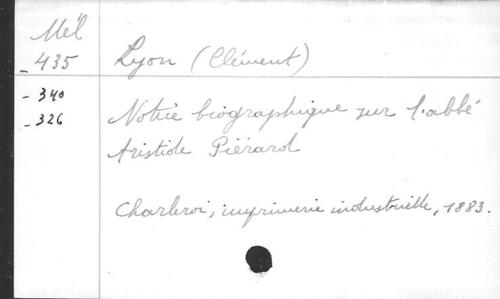 Mél
- 435
Lyon (Clément)
- 340
- 326
Notice biographique sur l'abbé
Aristide Piérard
Charleroi, imprimerie industrielle, 1883.